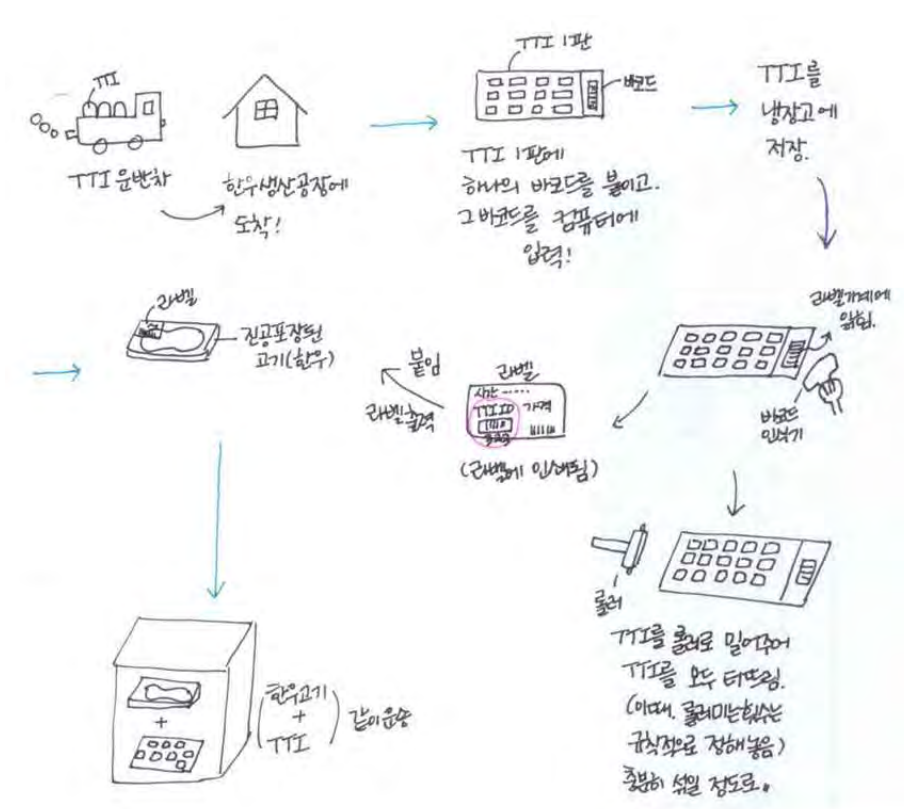 TTI
TTI 운반차
한우생산공장에
도착!
TTI 1판
바코드
TTI 1판에
하나의 바코드를 붙이고.
그 바코드를 컴퓨터에
입력!
TTI를
냉장고에
저장.
라벨기계에
읽힘.
바코드
인식기
라벨
시간
TTI ID 가격
(라벨에 인쇄됨)
라벨출력
붙임
롤러
TTI를 롤러로 밀어주어
TTI를 모두 터뜨림.
(이때, 롤러미는횟수는
규칙적으로 정해놓음)
충분히 섞일 정도로.
라벨
진공포장된
고기(한우)
+
한우고기
+
TTI
같이운송